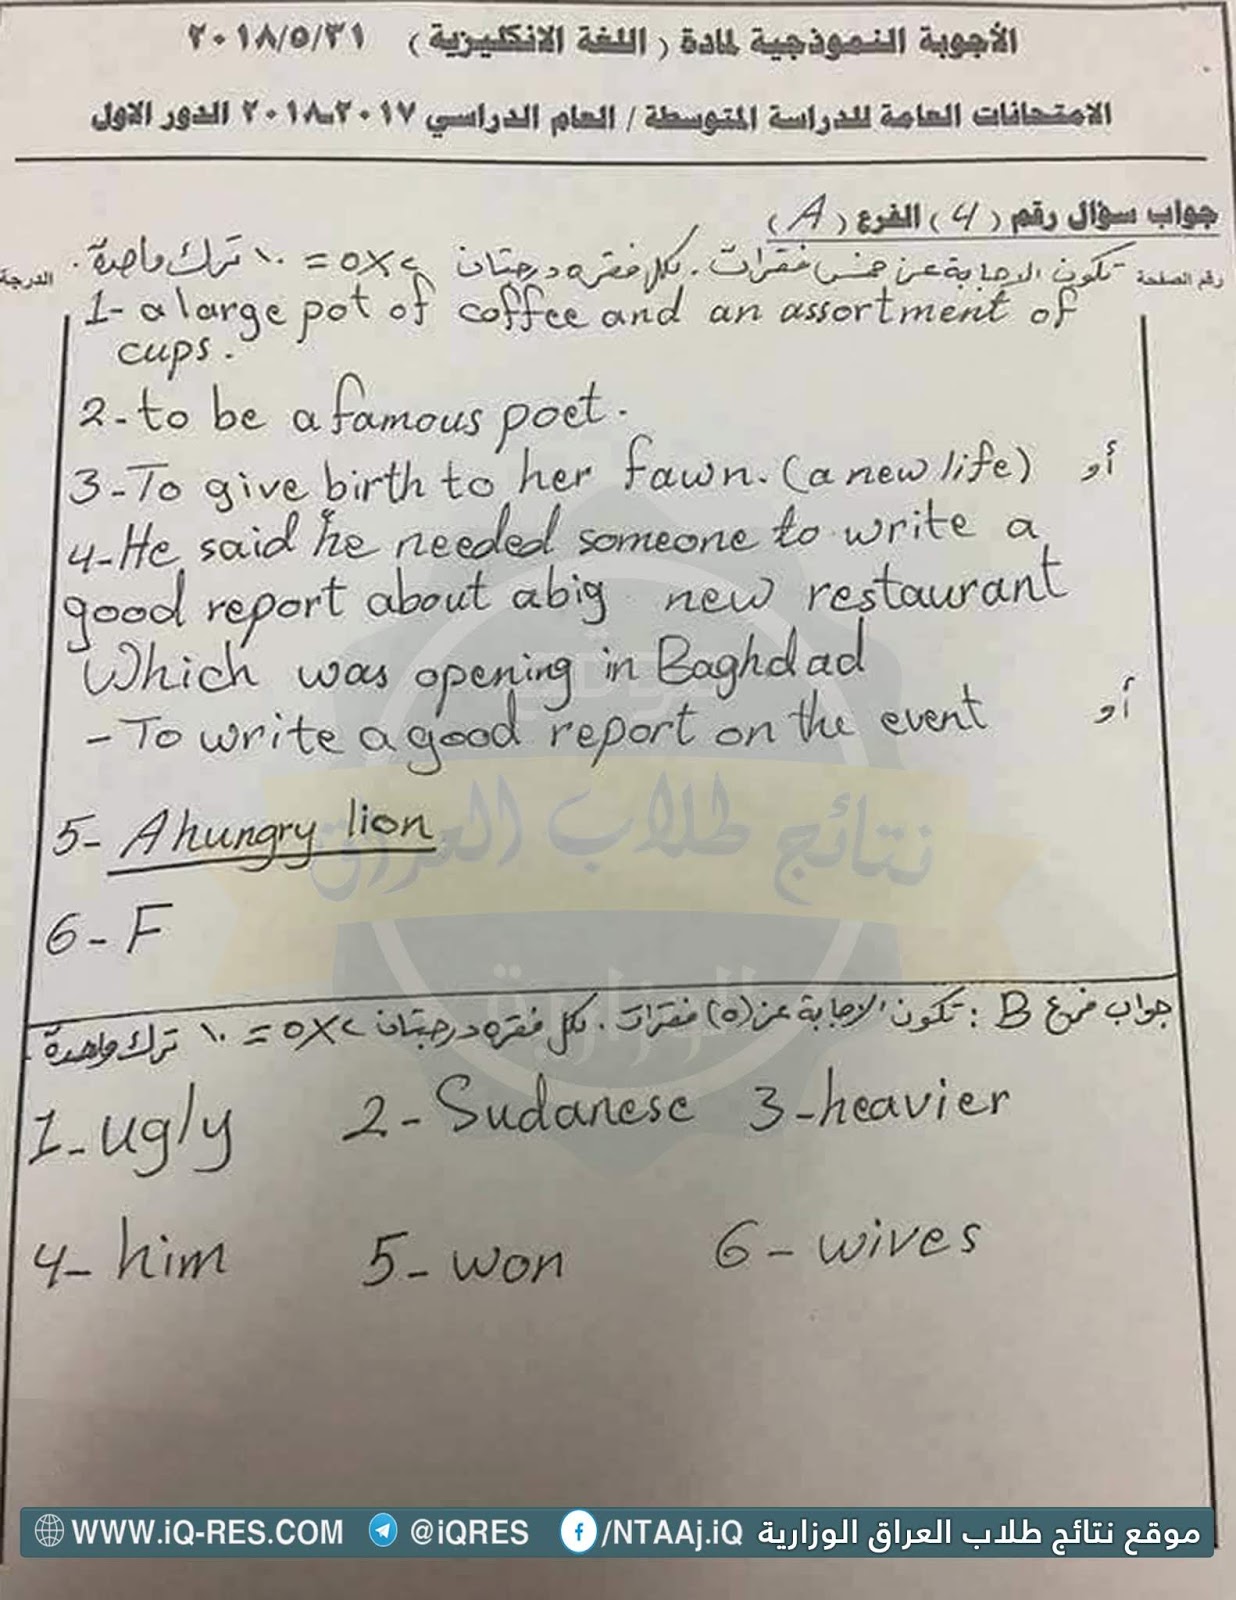 الأجوبة النموذجية لمادة ( اللغة الانكليزية ) ٢٠١٨/٥/٣١
الامتحانات العامة للدراسة المتوسطة / العام الدراسي ٢٠١٧-٢٠١٨ الدور الاول
جواب سؤال رقم ( 4 ) الفرع ( A )
رقم الصفحة تكون الاجابة عن خمس فقرات . لكل فقرة درجتان ٢ × ٥ = ١٠ ترك واحدة . الدرجة
1- a large pot of coffee and an assortment of
cups.
2- to be a famous poet.
3- To give birth to her fawn. (a new life) أو
4- He said he needed someone to write a
good report about a big new restaurant
Which was opening in Baghdad
- To write a good report on the event أو
5- A hungry lion
6- F
جواب فرع B : تكون الاجابة عن (٥) فقرات . لكل فقرة درجتان ٢ × ٥ = ١٠ ترك واحدة .
1- ugly 2- Sudanese 3- heavier
4- him 5- won 6- wives
نتائج طلاب العراق
الوزارية
WWW.iQ-RES.COM @iQRES /NTAAj.iQ موقع نتائج طلاب العراق الوزارية